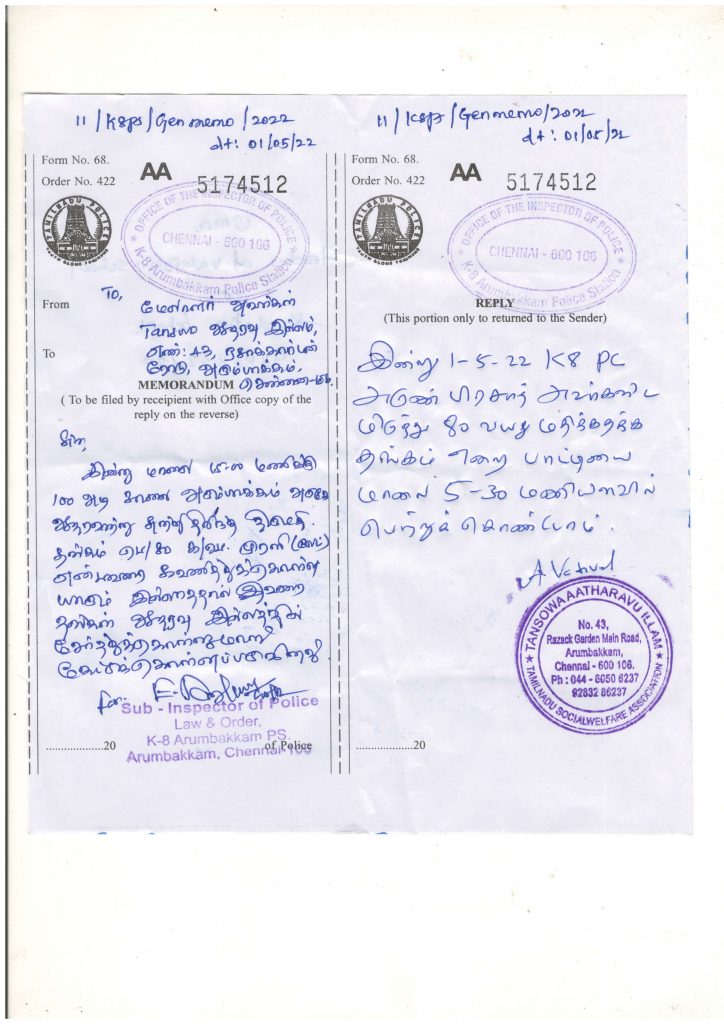 11/K8ps/Gen memo/2022
dt: 01/05/22
Form No. 68.
Order No. 422
AA 5174512
TAMILNADU POLICE
TRUTH ALONE TRIUMPHS
OFFICE OF THE INSPECTOR OF POLICE
CHENNAI - 600 106
K-8 Arumbakkam Police Station
From
To,
மேலாளர் அவர்கள்
Tanswo ஆதரவு இல்லம்,
எண்: 43, ரசாக்கார்டன்
To
ரோடு, அரும்பாக்கம்,
சென்னை-106.
MEMORANDUM
( To be filed by receipient with Office copy of the
reply on the reverse)
இன்று மாலை மணிக்கு
100 அடி சாலை அரும்பாக்கம் அருகே
ஆதரவற்று சுற்றித்திரிந்த திருமதி.
தங்கம் பெ/80 க/பெ. முரளி
என்பவரை கவனித்துக்கொள்ள
யாரும் இல்லாததால் இவரை
தங்கள் ஆதரவு இல்லத்தில்
சேர்த்துக்கொள்ளுமாறு
கேட்டுக்கொள்ளப்படுகிறது.
for.
Sub - Inspector of Police
Law & Order,
K-8 Arumbakkam PS.
Arumbakkam, Chennai-106
..............20 of Police
11/K8ps/Gen memo/2022
dt: 01/05/22
Form No. 68.
Order No. 422
AA 5174512
TAMILNADU POLICE
TRUTH ALONE TRIUMPHS
OFFICE OF THE INSPECTOR OF POLICE
CHENNAI - 600 106
K-8 Arumbakkam Police Station
REPLY
(This portion only to returned to the Sender)
இன்று 1-5-22 K8 PC
அருண் பிரசாத் அவர்களிட
மிருந்து 80 வயது மதிக்கத்தக்க
தங்கம் என்ற பாட்டியை
மாலை 5-30 மணியளவில்
பெற்றுக் கொண்டோம்.
A. Vetrivel
TANSOWA AATHARAVU ILLAM
No. 43,
Razack Garden Main Road,
Arumbakkam,
Chennai - 600 106.
Ph : 044 - 6050 6237
92832 86237
TAMILNADU SOCIALWELFARE ASSOCIATION
..............20